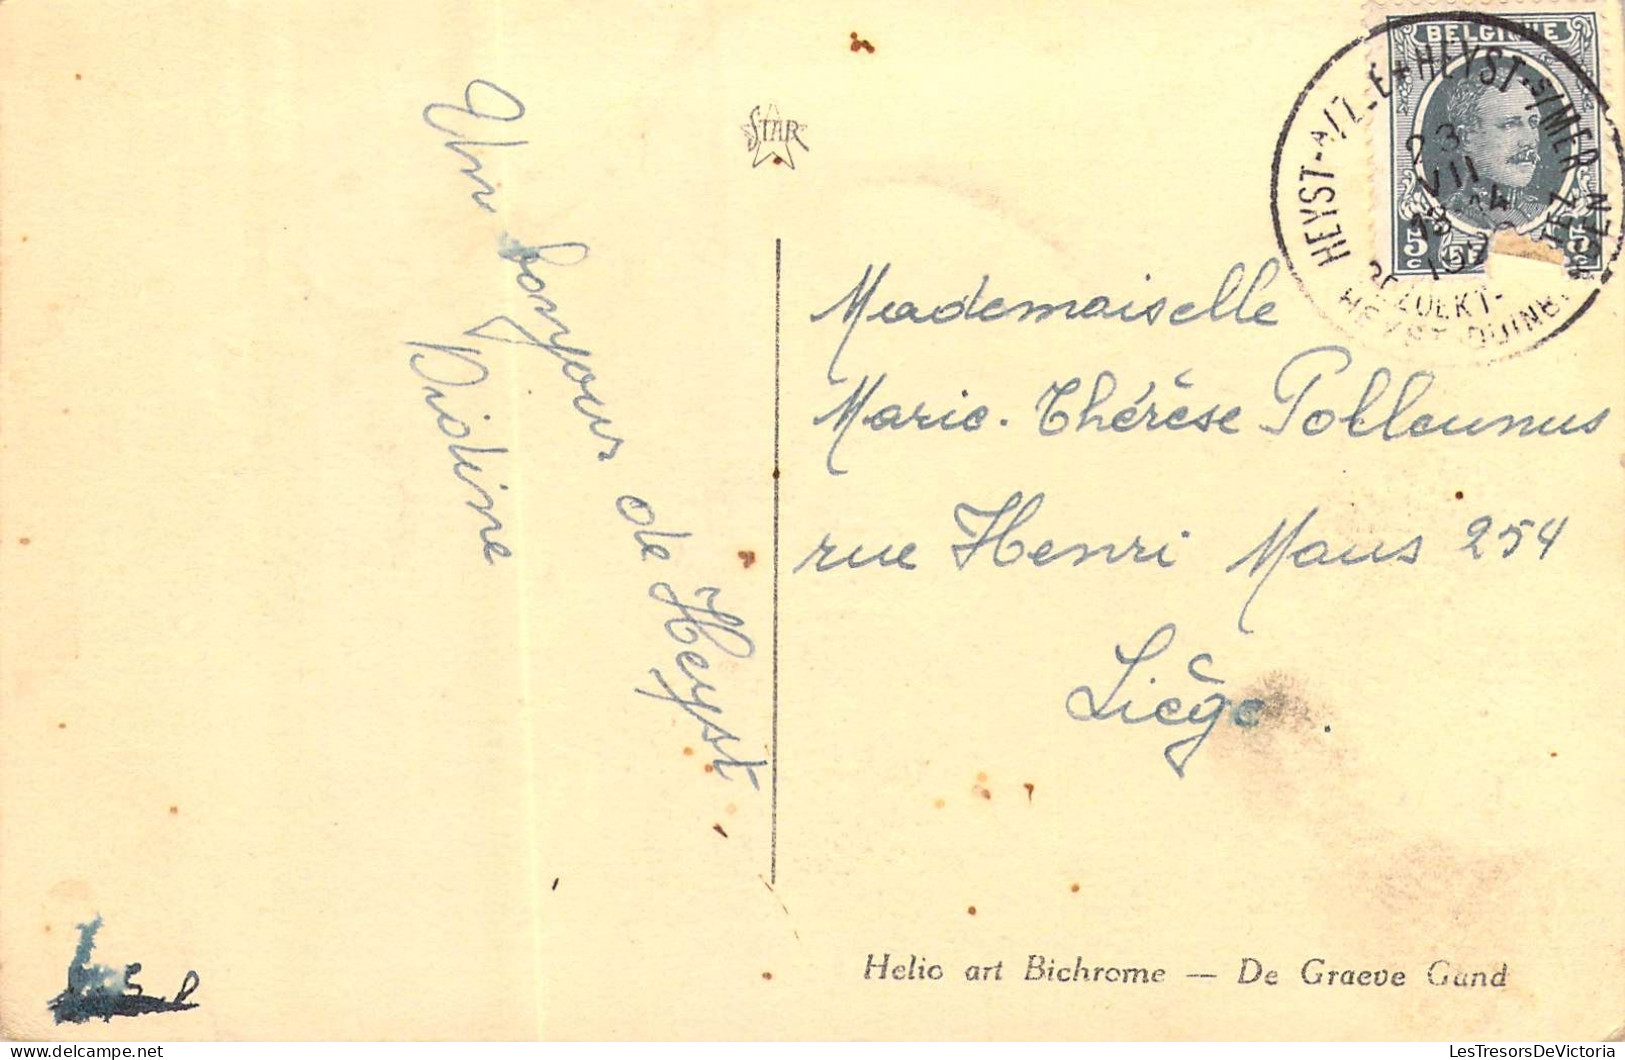 Un bonjour de Heyst
Didine
STAR
BELGIQUE
5c 5c
HEYST-A/ZEE + HEYST-S/MER
23
VII
13-14
BEZOEKT-
HEYST-DUINBERGEN
Mademoiselle
Marie-Thérèse Polleunus
rue Henri Maus 254
Liège.
Helio art Bichrome — De Graeve Gand
LesTresorsDeVictoria